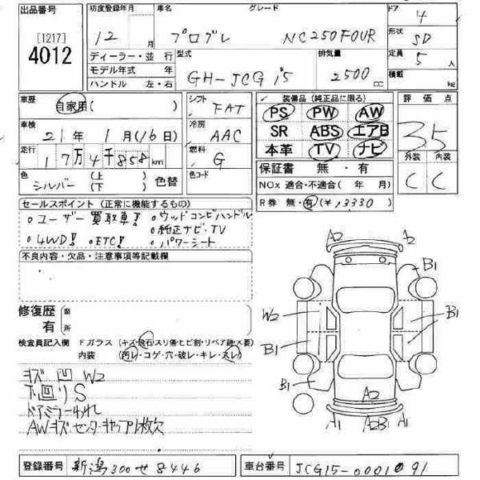 出品番号 [1217] 4012
初度登録年月 12 月
車名 プログレ
グレード NC250FOUR
ドア 4
形状 SD
ディーラー・並行
モデル年式 年
ハンドル 左・右
型式 GH-JCG15
排気量 2500 cc
定員 5 人
積載 kg
車歴 自家用( )
シフト FAT
装備品(純正品に限る)
評価点 35
車検 21年 1月(16日)
冷房 AAC
PS PW AW
SR ABS エアB
本革 TV ナビ
走行 17万4千858 km
燃料 G
外装 内装
C C
色 シルバー (上 下) 色替
色コード
保証書 無・有
NOx 適合・不適合( 年 月)
R券 無・有(¥13330)
セールスポイント(正常に機能するもの)
。ユーザー買取車!! 。ウッドコンビハンドル
。純正ナビ・TV
。4WD!! 。ETC!! 。パワーシート
不良内容・欠品・注意事項等記載欄
修復歴 無 有
検査員記入欄 Fガラス(キズ・飛石・スリ傷・ヒビ割・リペア跡・要)
内装(汚レ・コゲ・穴・破レ・キレ・スレ)
キズ 凹 W2
下回りS
ドアミラーわれ
AWキズ センターキャップ1枚欠
A2 A2
B1 B1
W2 B1
B1 B1
A2
A1 A2B A1
登録番号 新潟300せ8446
車台番号 JCG15-0001091